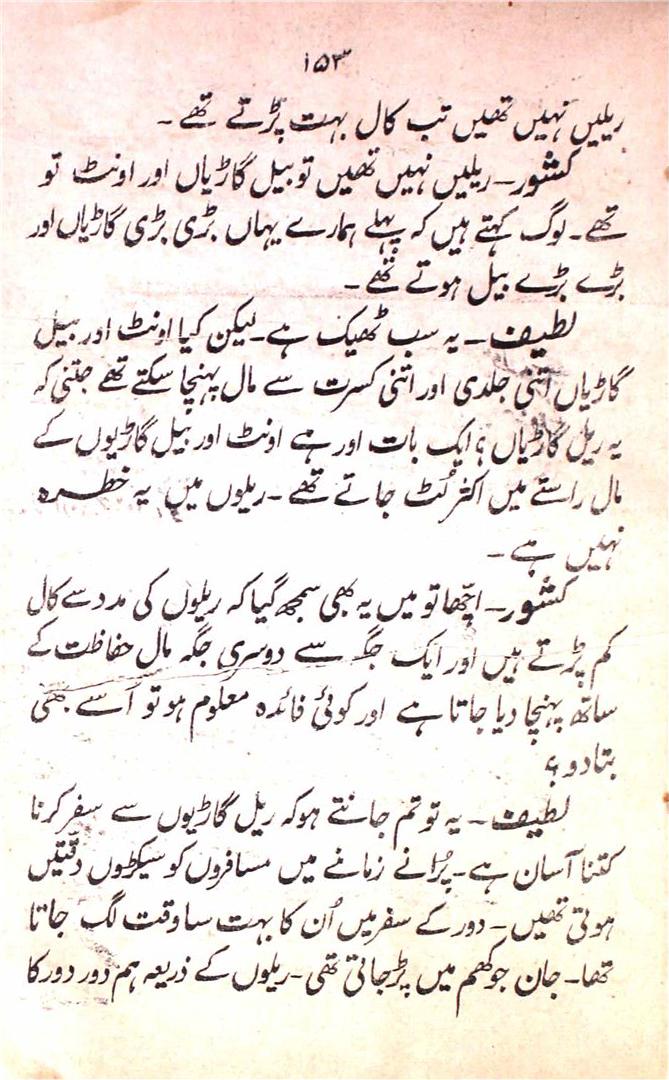 ۱۵۳
ریلیں نہیں تھیں تب کال بہت پڑتے تھے ۔
کشور۔ ریلیں نہیں تھیں تو بیل گاڑیاں اور اونٹ تو
تھے۔ لوگ کہتے ہیں کہ پہلے ہمارے یہاں بڑی بڑی گاڑیاں اور
بڑے بڑے بیل ہوتے تھے ۔
لطیف ۔ یہ سب ٹھیک ہے۔ لیکن کیا اونٹ اور بیل
گاڑیاں اتنی جلدی اور اتنی کسرت سے مال پہنچا سکتے تھے جتنی کہ
یہ ریل گاڑیاں ؟ ایک بات اور ہے اونٹ اور بیل گاڑیوں کے
مال راستے میں اکثر لُٹ جاتے تھے ۔ ریلوں میں یہ خطرہ
نہیں ہے ۔
کشور۔ اچھا تو میں یہ بھی سمجھ گیا کہ ریلوں کی مدد سے کال
کم پڑتے ہیں اور ایک جگہ سے دوسری جگہ مال حفاظت کے
ساتھ پہنچا دیا جاتا ہے اور کوئی فائدہ معلوم ہو تو اُسے بھی
بتا دو ؟
لطیف ۔ یہ تو تم جانتے ہو کہ ریل گاڑیوں سے سفر کرنا
کتنا آسان ہے۔ پُرانے زمانے میں مسافروں کو سیکڑوں دقتیں
ہوتی تھیں ۔ دور کے سفر میں اُن کا بہت سا وقت لگ جاتا
تھا۔ جان جوکھم میں پڑ جاتی تھی ۔ ریلوں کے ذریعہ ہم دور دور کا